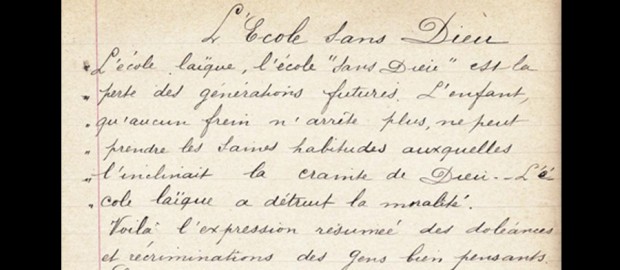 L'École sans Dieu
"L'école laïque, l'école "sans Dieu" est la
" perte des générations futures. L'enfant,
" qu'aucun frein n'arrête plus, ne peut
" prendre les saines habitudes auxquelles
" l'inclinait la crainte de Dieu.- L'é-
" cole laïque a détruit la moralité.
Voilà l'expression résumée des doléances
et récriminations des gens bien pensants.